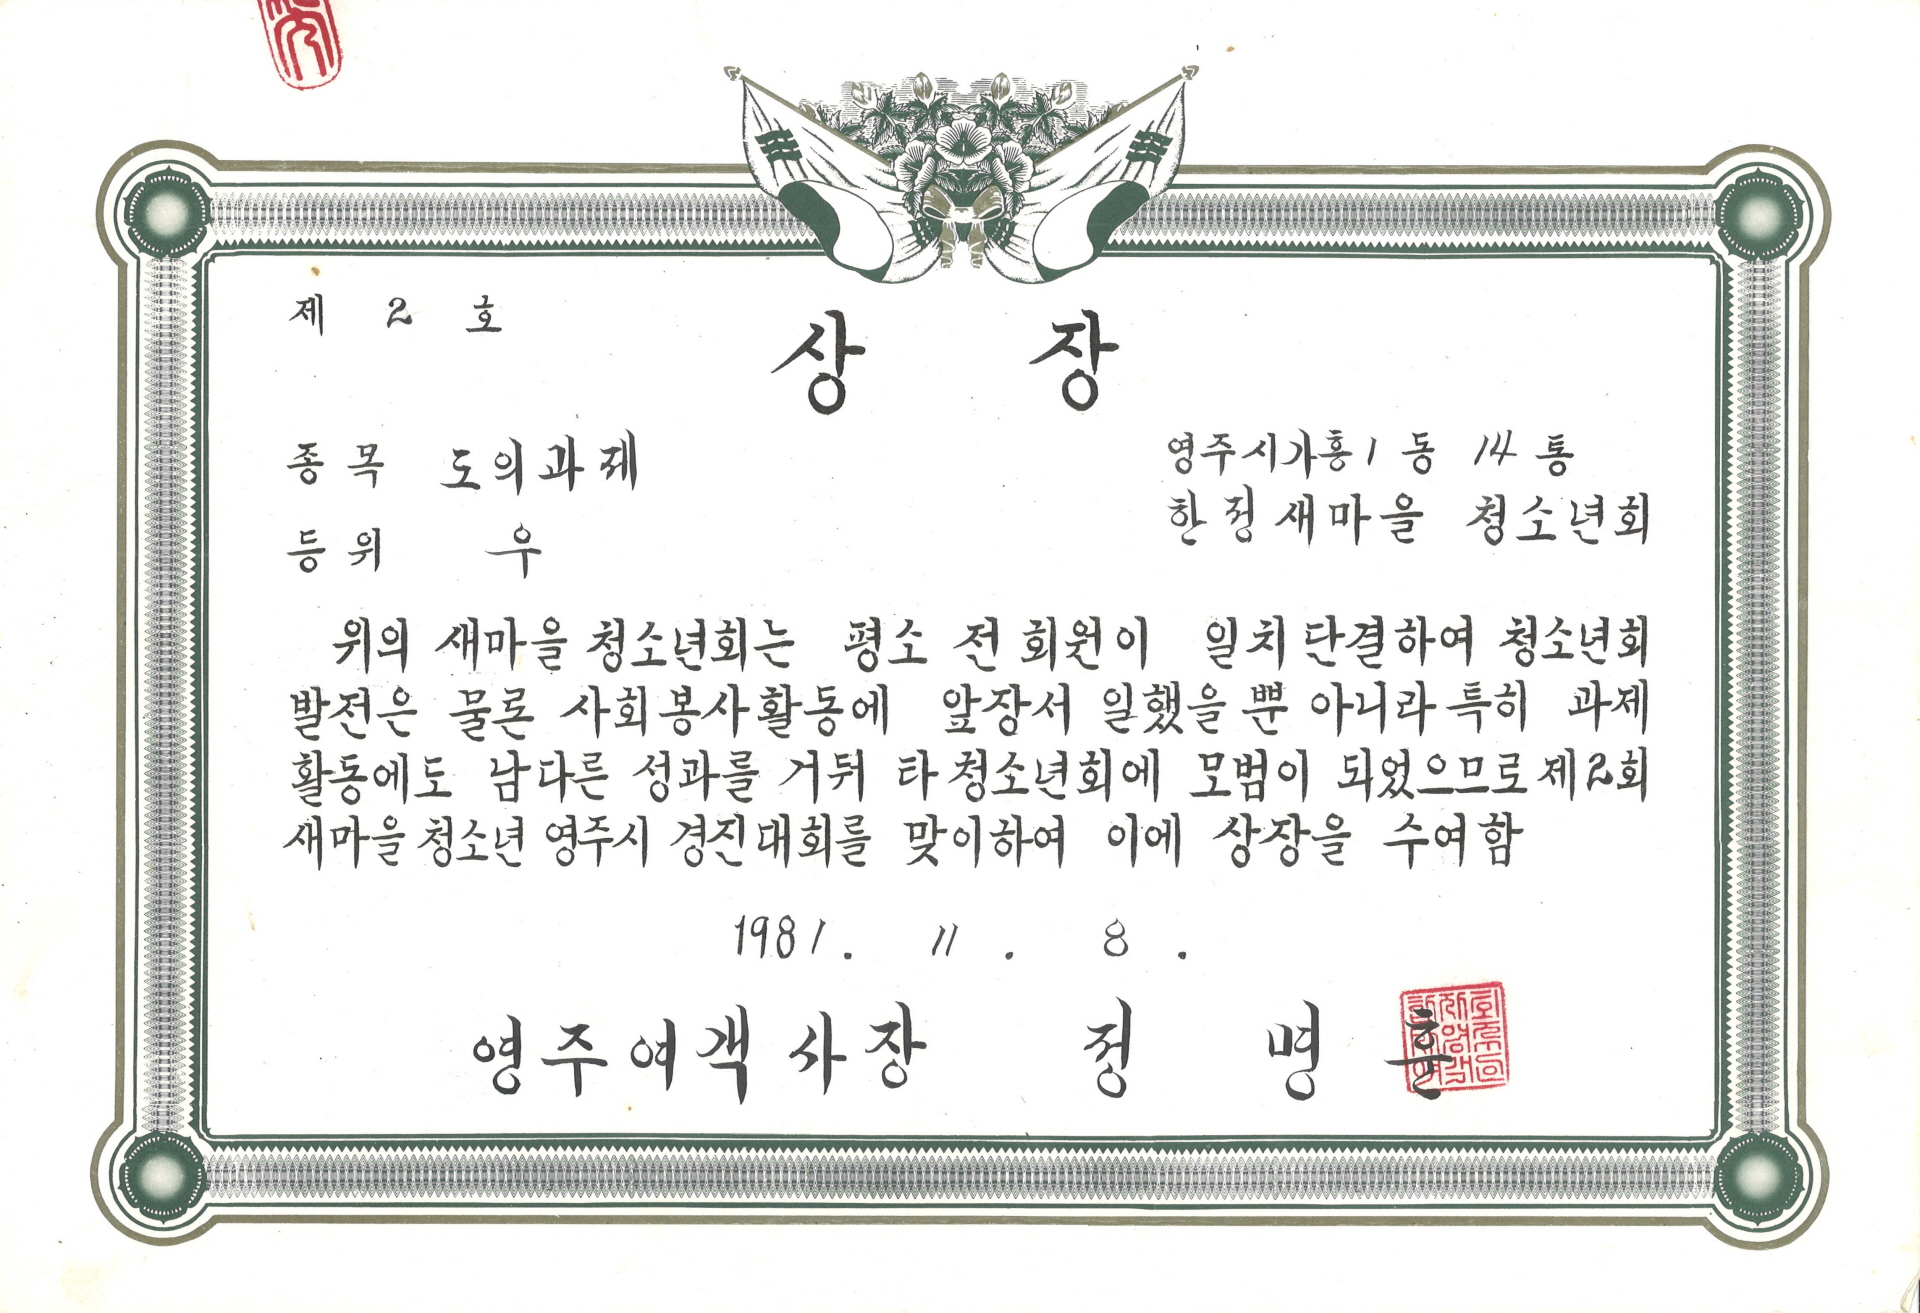 제 2 호
상 장
종목 도의과제
등위 우
영주시가흥1동 14통
한정새마을 청소년회
위의 새마을 청소년회는 평소 전 회원이 일치 단결하여 청소년회
발전은 물론 사회봉사활동에 앞장서 일했을뿐 아니라 특히 과제
활동에도 남다른 성과를 거둬 타 청소년회에 모범이 되었으므로 제2회
새마을 청소년 영주시 경진대회를 맞이하여 이에 상장을 수여함
1981. 11. 8.
영주여객사장 정 명 훈